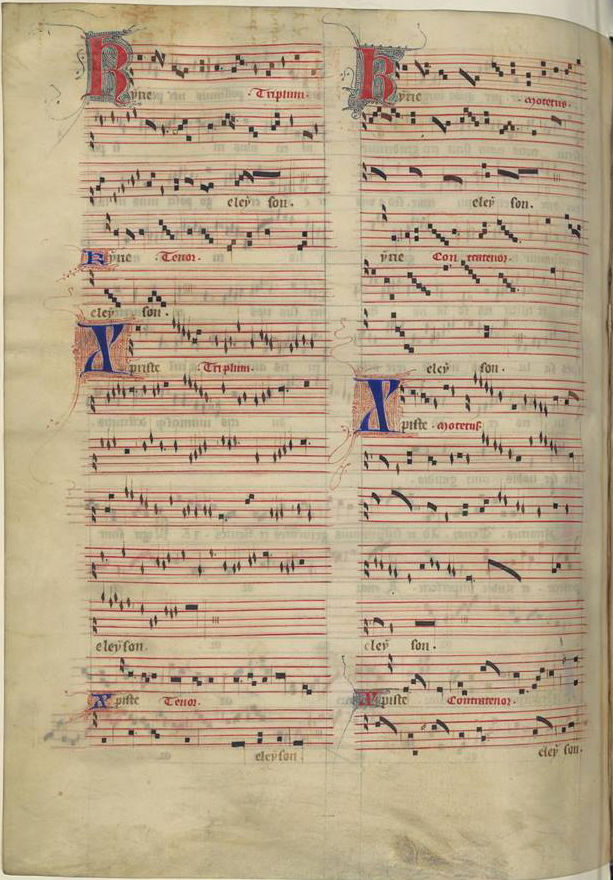 Kyrie Triplum.
eleyson.
Kyrie Tenor.
eleyson.
Xpriste Triplum.
eleyson.
Xpiste Tenor.
eleyson.
Kyrie Motetus.
eleyson.
yrie Contratenor.
eleyson.
Xpiste Motetus
eleyson.
Xpiste Contratenor.
eleyson.